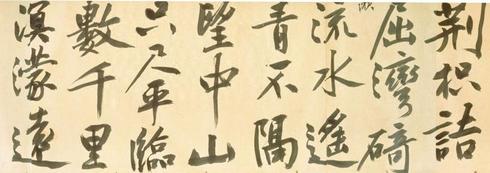 荆枳詰
屈灣碕
流水遙
青不隔
望中山
只尺平臨
數千里
溟濛遠